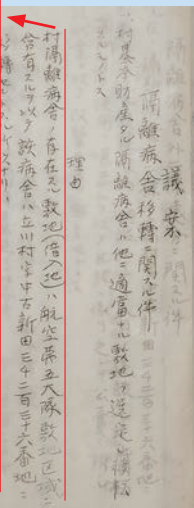 議案
隔離病舎移轉ニ関スル件
村基本財産タル隔離病舎ハ他ニ適當ナル敷地ヲ選定シ移轉
スルモノトス
理由
村隔離病舎ノ存在スル敷地(借入地)ハ航空第五大隊敷地区域ニ
含有スルヲ以テ該病舎ハ立川村字中古新田三千二百三十六番地ニ